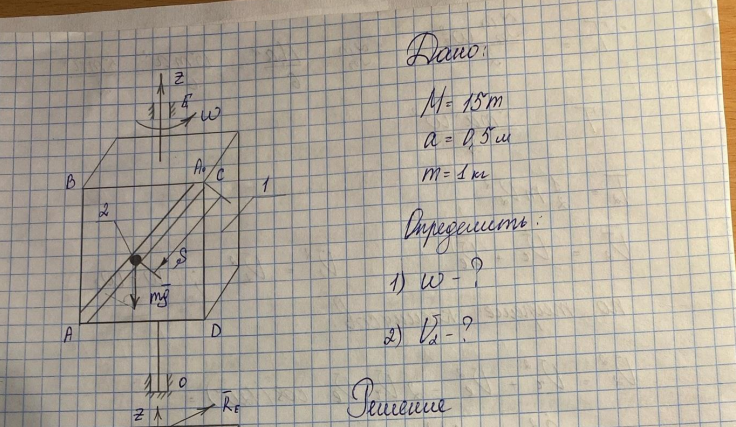 Z
E
ω
B
A₀ C
1
2
S
mg̅
A
D
O
Z
R̅E
Дано:
M = 15m
a = 0,5 м
m = 1 кг
Определить:
1) ω - ?
2) V̅₂ - ?
Решение